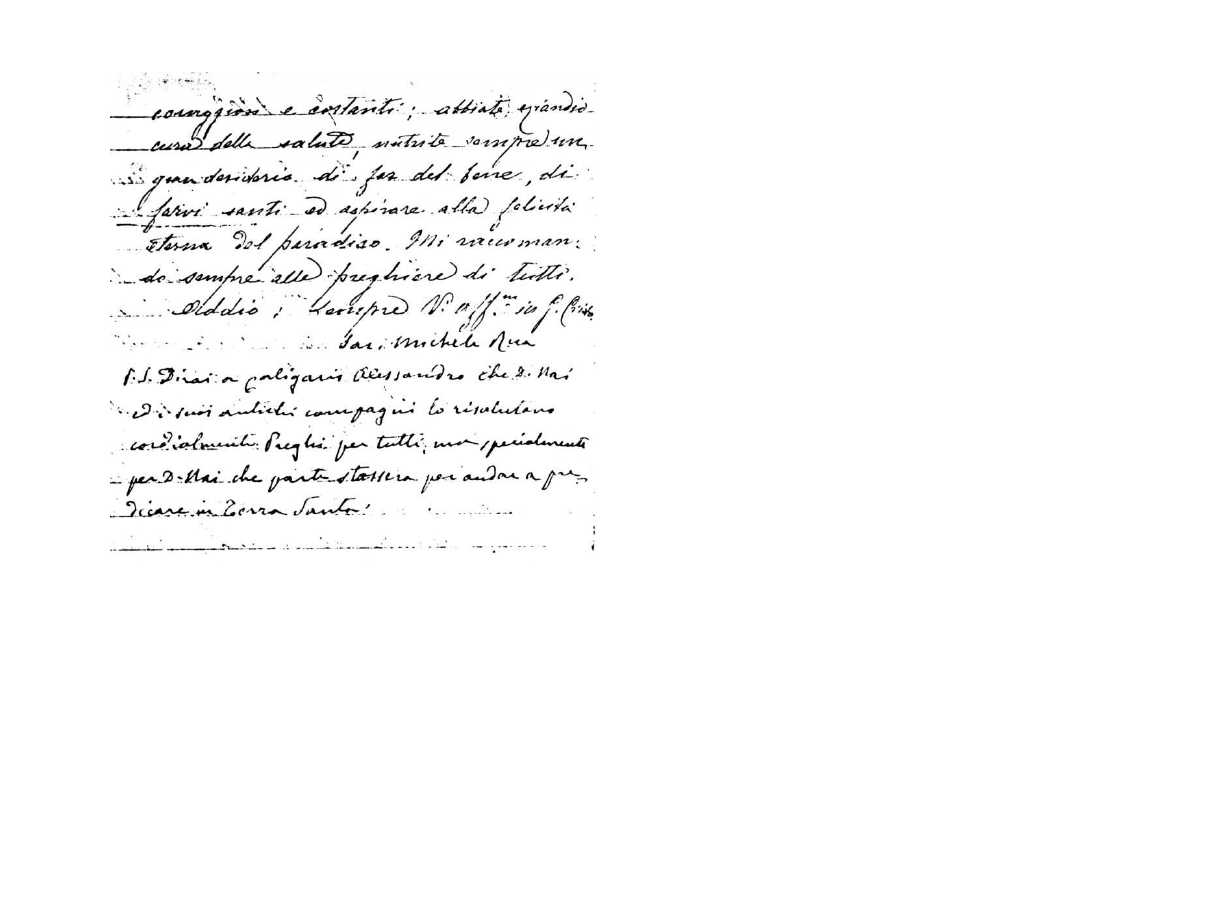 coraggiosi e costanti; abbiate eziandio
cura della salute, nutrite sempre un
gran desiderio di far del bene, di
farvi santi ed aspirare alla felicità
eterna del paradiso. Mi raccoman-
do sempre alle preghiere di tutti.
Addio; sempre V. aff.mo in G. Cristo
Sac. Michele Rua
P.S. Dirai a Caligaris Alessandro che D. Nai
ed i suoi antichi compagni lo risalutano
cordialmente. Preghi per tutti, ma specialmente
per D. Nai che parte stassera per andar a pre-
dicare in Terra Santa.